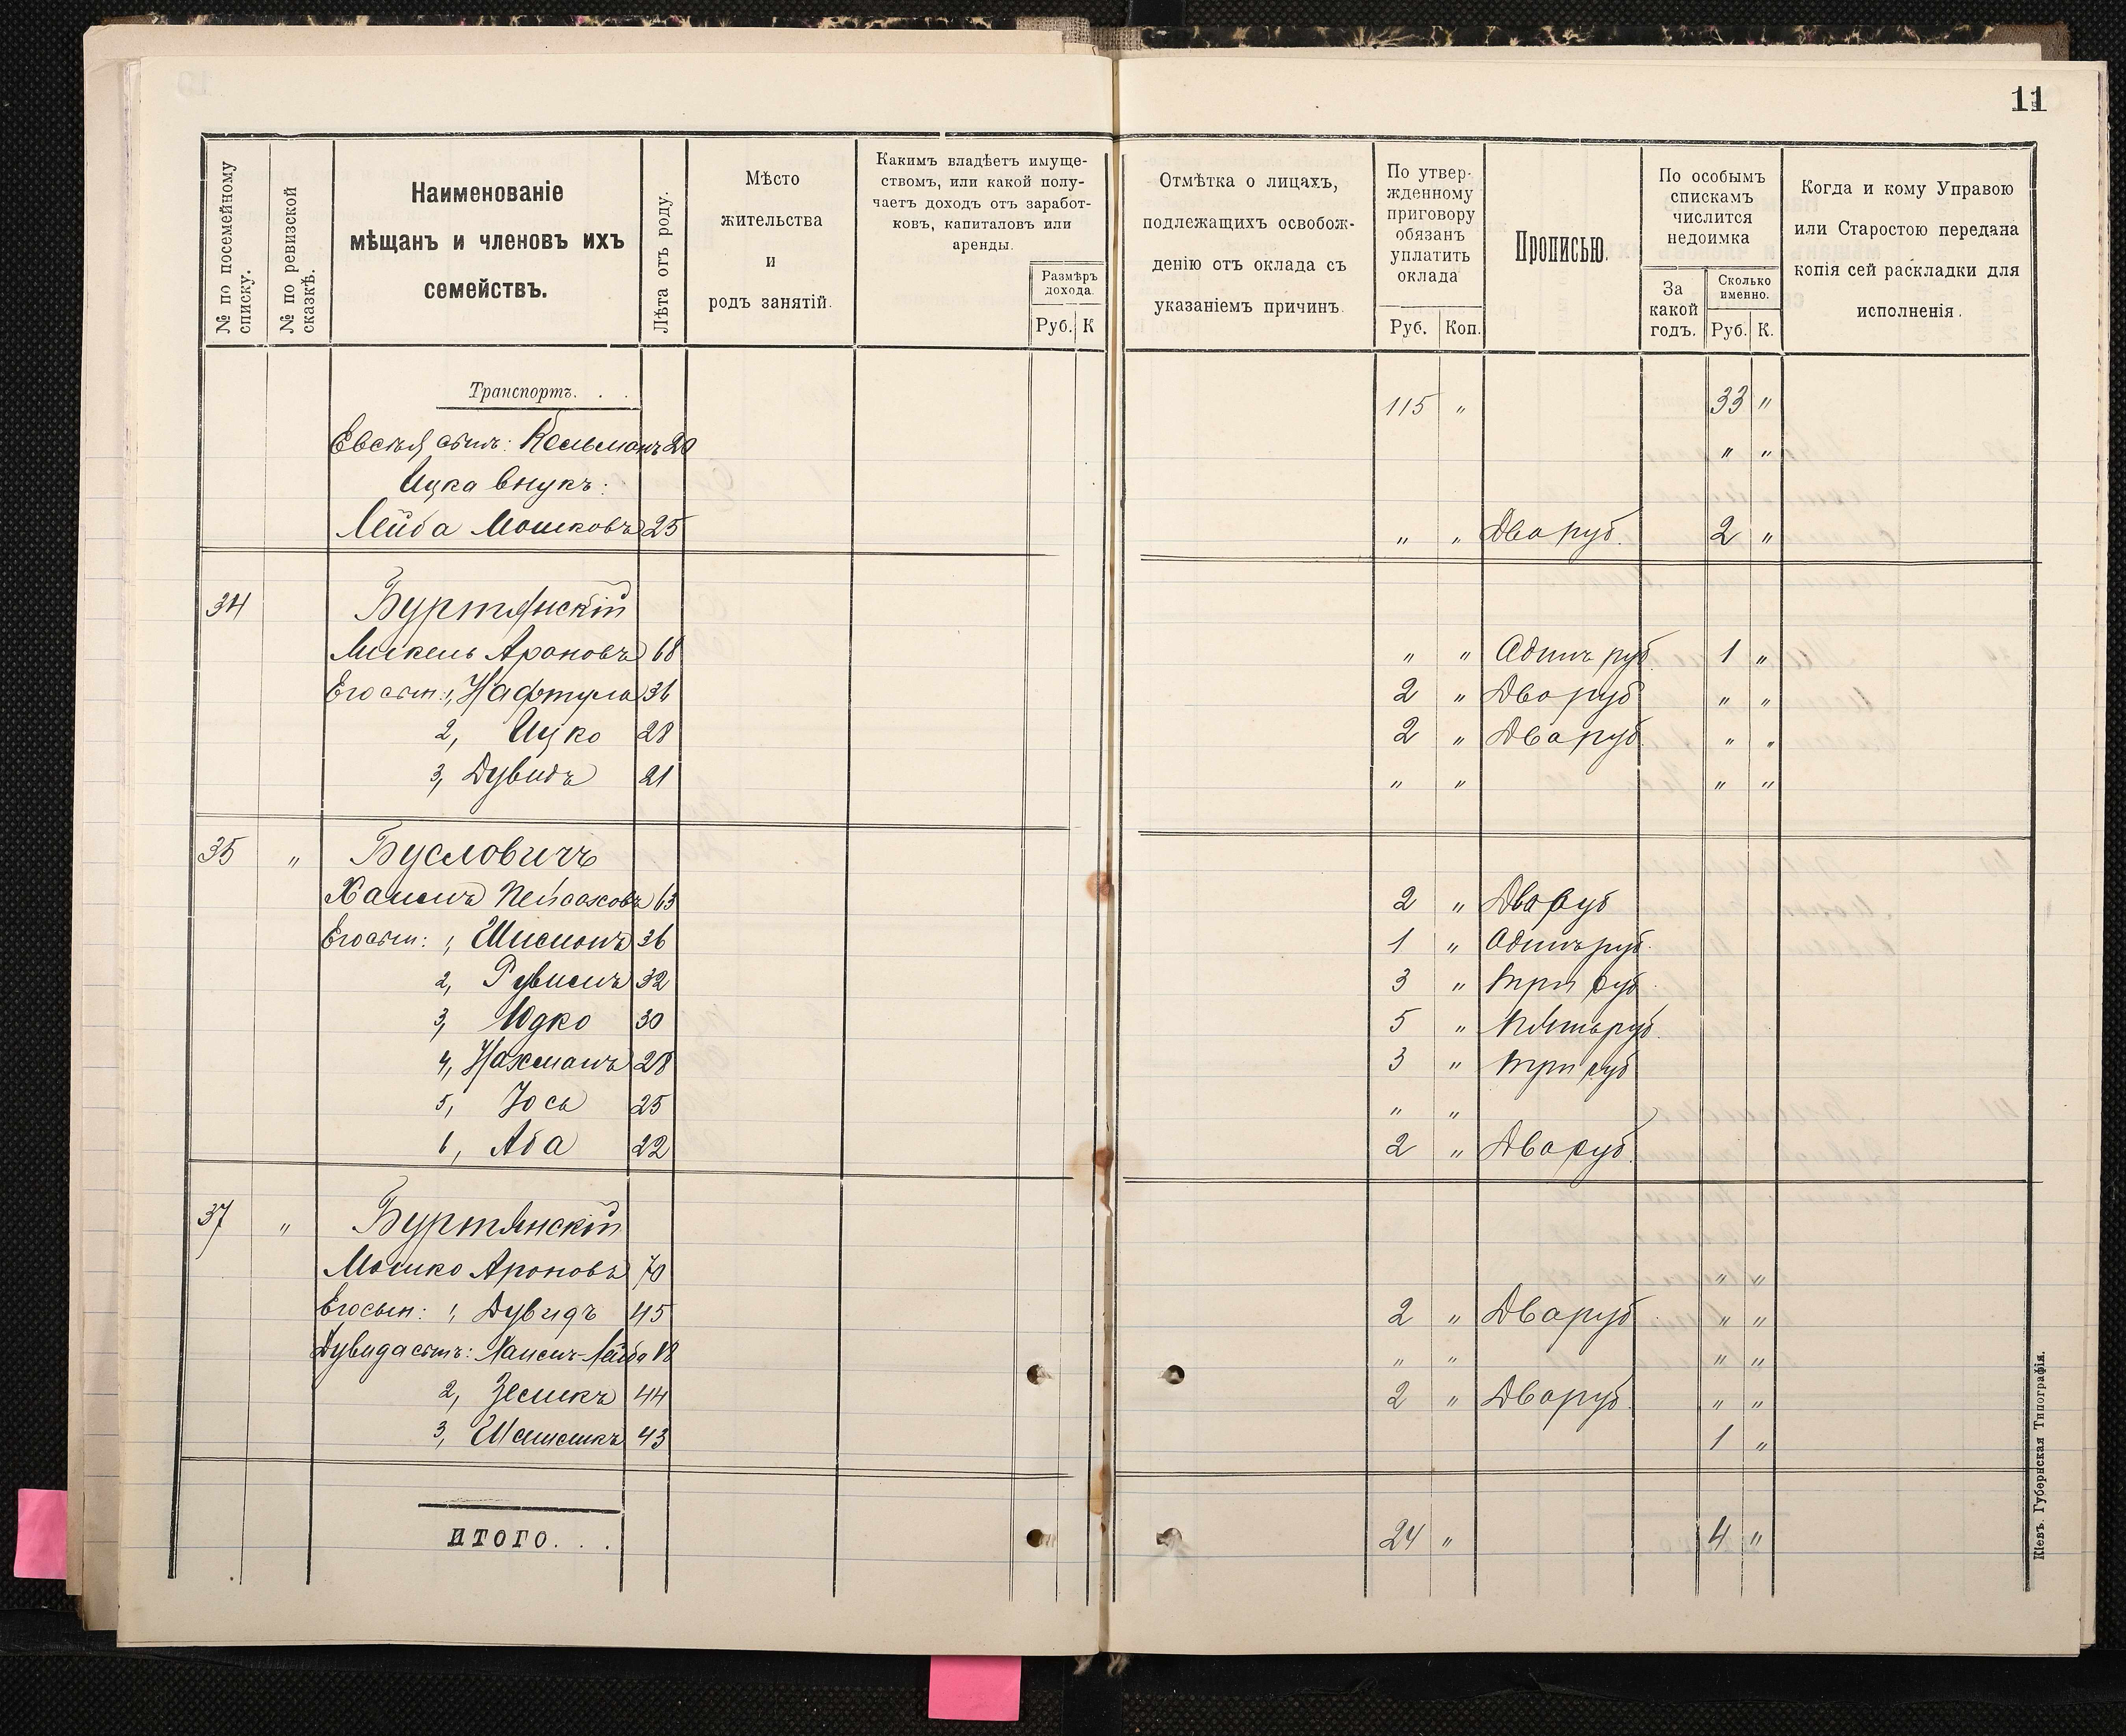 11
№ по посемейному списку.
№ по ревизской сказкѣ.
Наименованіе
мѣщанъ и членовъ ихъ
семействъ.
Лѣта отъ роду.
Мѣсто
жительства
и
родъ занятій.
Какимъ владѣетъ имуще-
ствомъ, или какой полу-
чаетъ доходъ отъ заработ-
ковъ, капиталовъ или
аренды.
Размѣръ
дохода.
Руб. К
Отмѣтка о лицахъ,
подлежащихъ освобож-
денію отъ оклада съ
указаніемъ причинъ.
По утвер-
жденному
приговору
обязанъ
уплатить
оклада
Руб. Коп.
Прописью.
По особымъ
спискамъ
числится
недоимка
За
какой
годъ.
Сколько
именно.
Руб. К.
Когда и кому Управою
или Старостою передана
копія сей раскладки для
исполненія.
Транспортъ. . . 115 „ 33 „
Евсѣя сынъ: Кельманъ 20 „ „
Ицка внукъ:
Лейба Мошковъ 25 „ „ Два руб. 2 „
34 Буртянскій
Микель Ароновъ 68 „ „ Адинъ руб. 1 „
Его сын: 1, Нафтула 36 2 „ Два руб „ „
2, Ицко 28 2 „ Два руб. „ „
3, Дувидъ 21 „ „ „ „
35 „ Бусловичъ
Хаимъ Пейсаховъ 63 2 „ Два руб
Его сын: 1, Шимонъ 36 1 „ Адинъ руб.
2, Рувимъ 32 3 „ три руб.
3, Юдко 30 5 „ пять руб.
4, Нахманъ 28 3 „ три руб
5, Іось 25 „ „
6, Аба 22 2 „ Два руб.
37 „ Буртянскій
Мошко Ароновъ 70 „ „
Его сын: 1, Дувидъ 45 2 „ Два руб. „ „
Дувида сынъ: Хаимъ-Лейба 18 „ „ „ „
2, Зесикъ 44 2 „ Два руб. „ „
3, 43 1 „
ИТОГО. . . 24 „ 4 „
Кіевъ. Губернская Типографія.